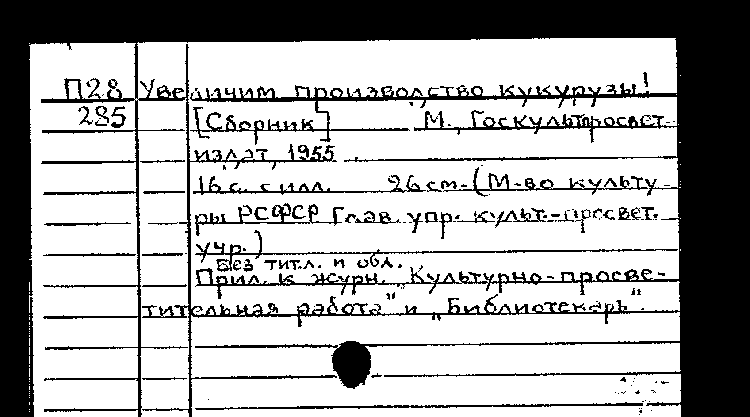 П28 Увеличим производство кукурузы!
285 [Сборник] М., Госкультпросвет-
издат, 1955.
16 с. с илл. 26 см. (М-во культу-
ры РСФСР Глав. упр. культ.-просвет.
учр.)
Без тит.л. и обл.
Прил. к журн. „Культурно-просве-
тительная работа" и „Библиотекарь".